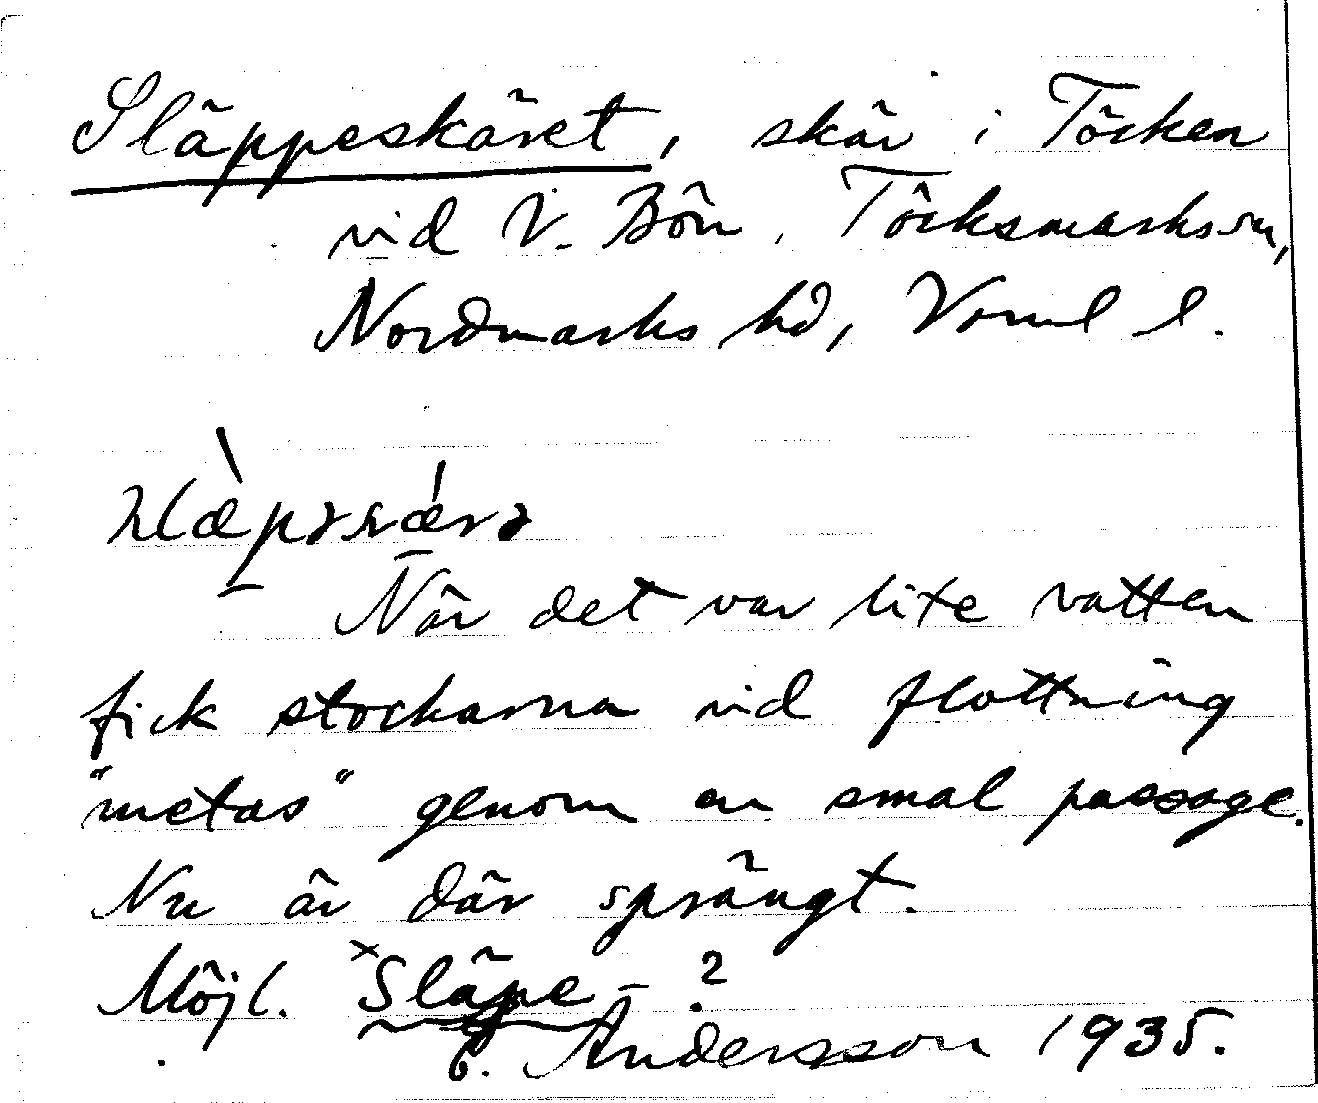 Släppeskäret, skär i Töcken
vid V. Bön, Töcksmarks sn,
Nordmarks hd, Värml l.
När det var lite vatten
fick stockarna vid flottning
"metas" genom en smal passage.
Nu är där sprängt.
Möjl. ˣSläpe-?
E. Andersson 1935.